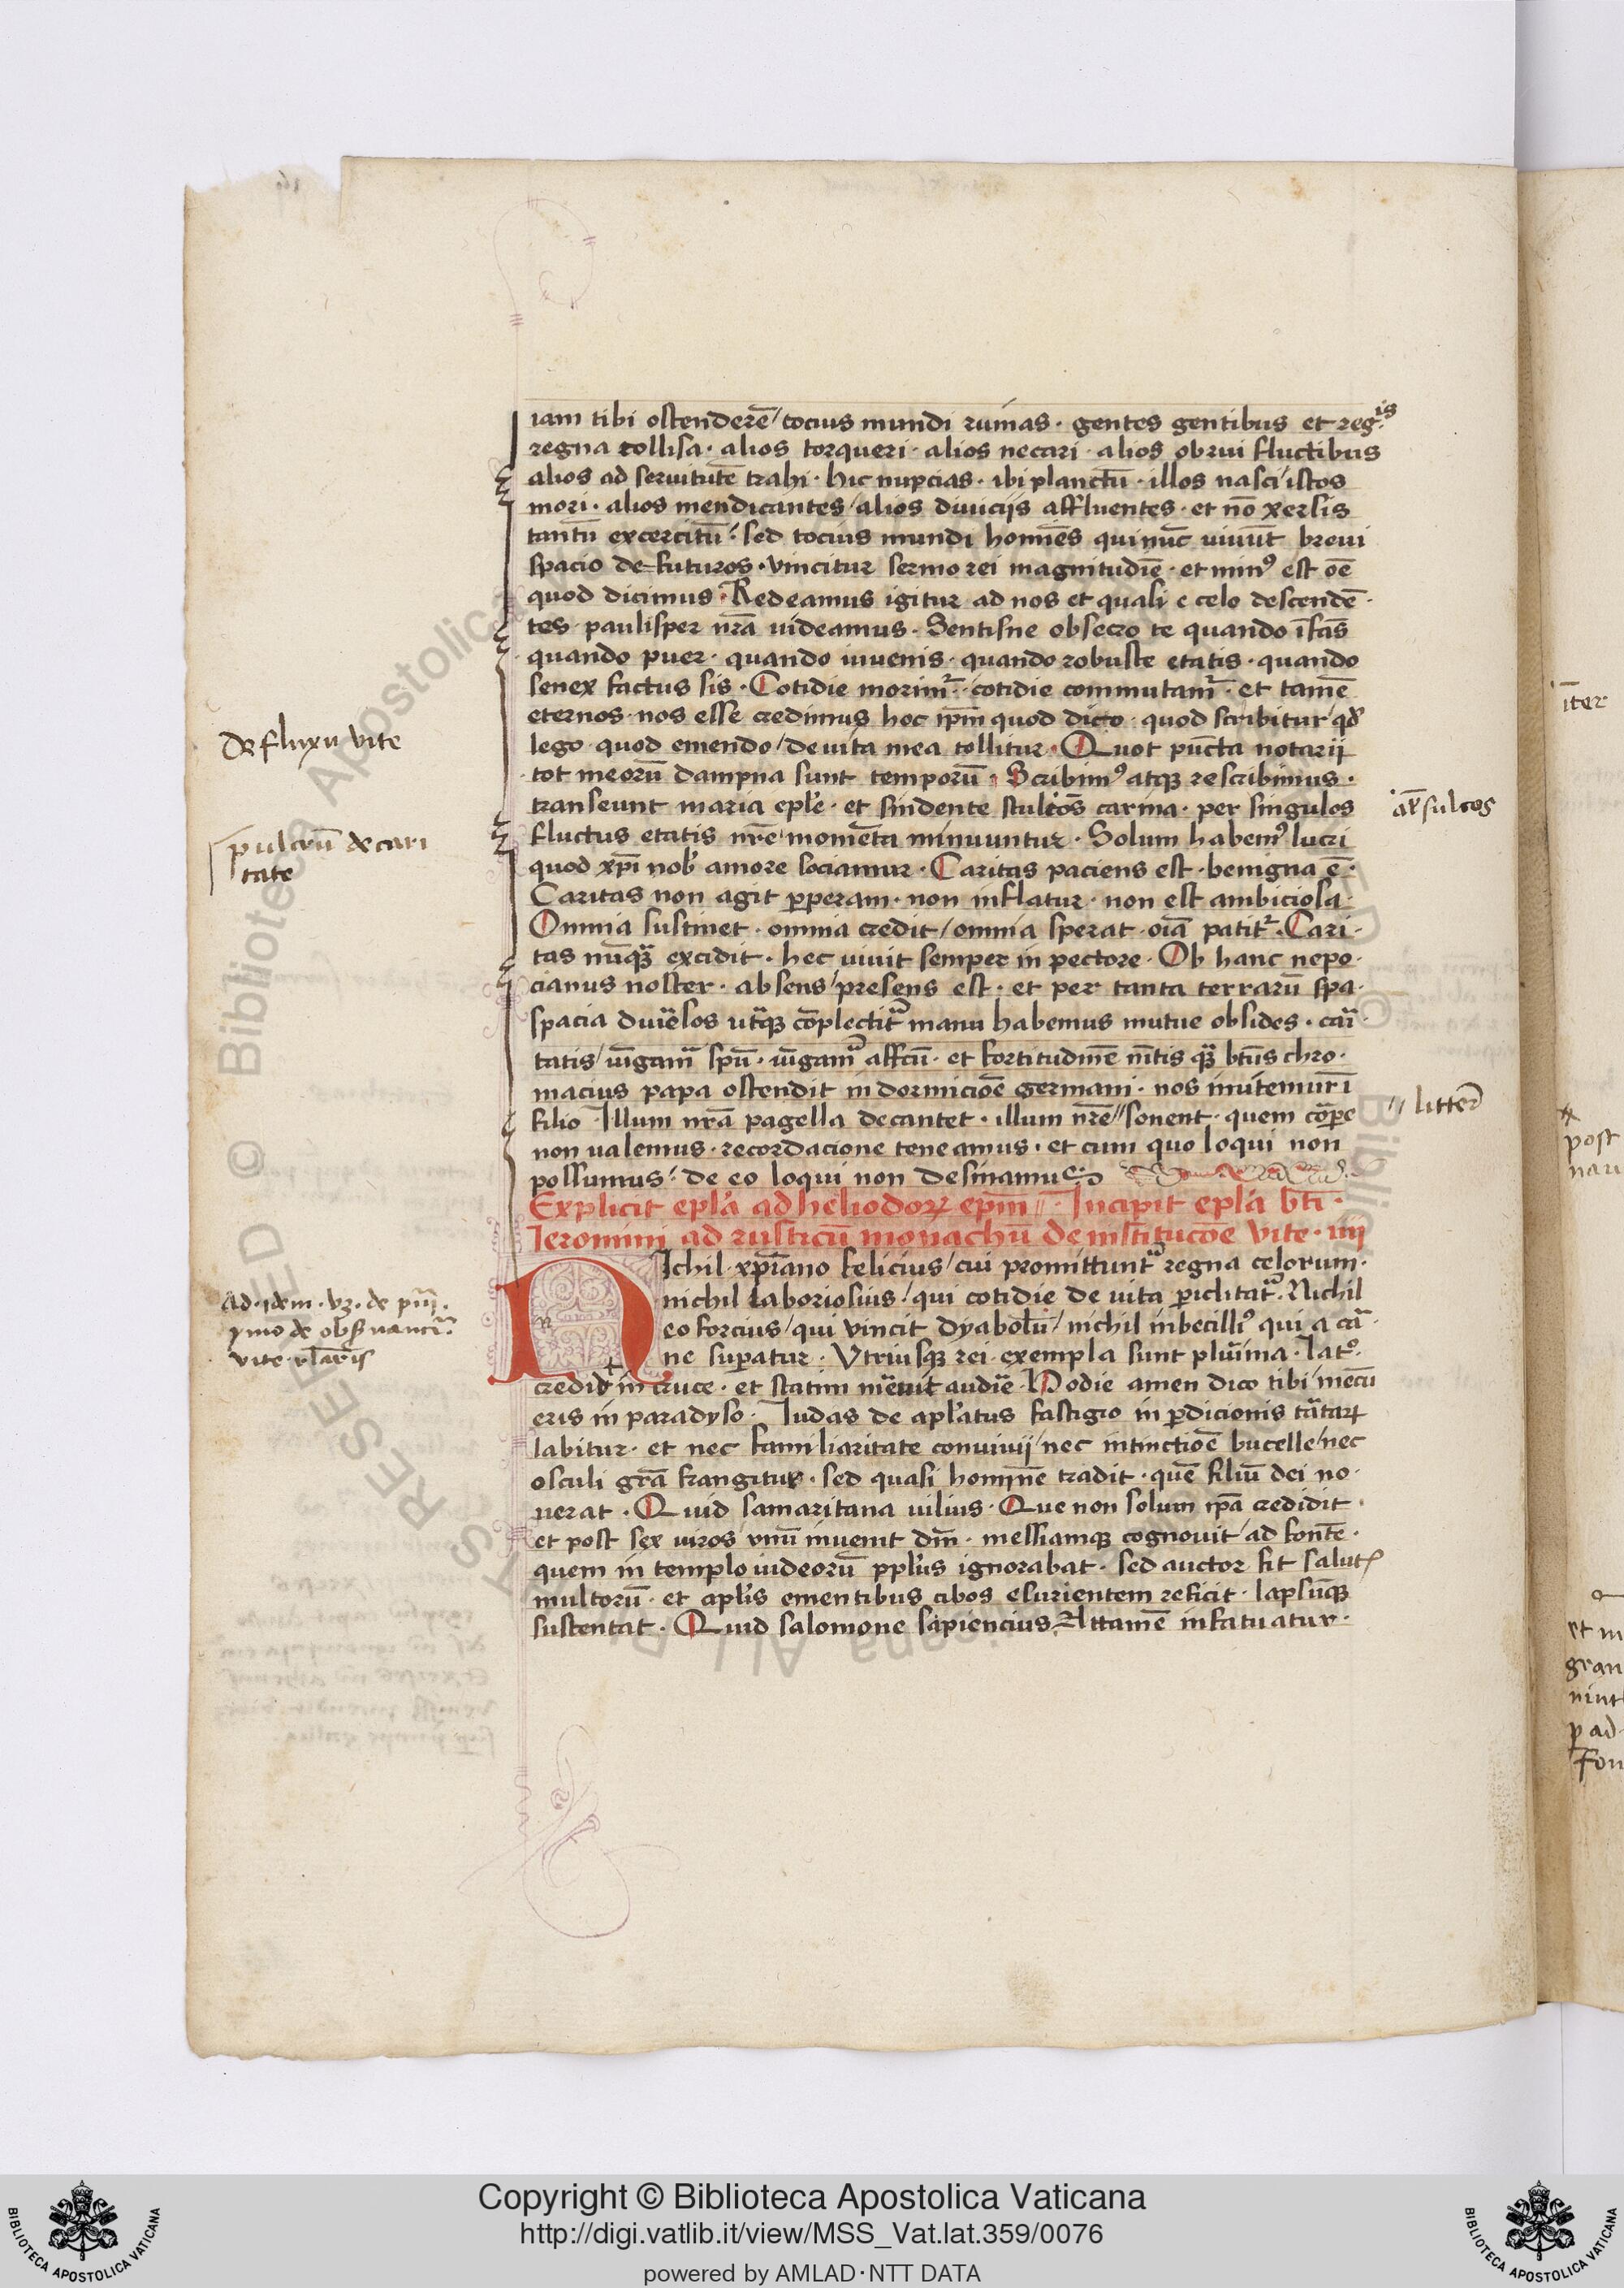 iam tibi ostenderē / tocius mundi ruinas · gentes gentibus et reg.is
regna collisa · alios torqueri · alios necari · alios obrui fluctibus
alios ad seruitutē trahi · hic nupcias · ibi planctū · illos nasci / istos
mori · alios mendicantes / alios diuicijs affluentes · et nō xerxis
tantū excercitū / sed tocius mundi homīes qui nūc uiuūt breui
spacio defuturos · vincitur sermo rei magnitudīe · et minꝰ est oē
quod dicimus · Redeamus igitur ad nos et quasi e celo descendē·
tes paulisper nr̄a uideamus · Sentisne obsecro te quando īfās
quando puer · quando iuuenis · quando robuste etatis · quando
senex factus sis · Cotidie morimr̄ · cotidie commutamr̄ · et tamē
eternos nos esse credimus hoc ip̄m quod dico · quod scribitur / qd̄
lego quod emendo / de uita mea tollitur · Quot pūcta notarij
tot meorū dampna sunt temporū · Scribimꝰ atqꝫ rescribimus ·
transeunt maria epl̄e · et sindente sultos carina · per singulos
fluctus etatis nr̄e momēta minuuntur · Solum habemꝰ lucri
quod xp̄i nob̄ amore sociamur · Caritas paciens est · benigna ē ·
Caritas non agit ꝑperam · non inflatur · non est ambiciosa ·
Omnia sustinet · omnia credit / omnia sperat · oīa patitr̄ · Cari·
tas nūqꝫ excidit · hec uiuit semper in pectore · Ob hanc nepo·
cianus noster · absens / presens est · et per tanta terrarū spa·
spacia diuīsos utāqꝫ cōplectitr̄ manu habemus mutue obsides · cari·
tatis / iūgamr̄ spū · iūgamr̄ affcū · et fortitudinē mētis qꝫ btūs chro·
macius papa ostendit in dormiciōe germani · nos imitemur ī
filio · Illum nr̄a pagella decantet · illum nr̄e // sonent · quem cōꝑe
non ualemus · recordacione teneamus · et cum quo loqui non
possumus / de eo loqui non desinamus
Explicit epl̄a ad heliodorꝝ ep̄m // Incipit epl̄a bt̄i ·
Jeronimi ad rusticū monachū de institucōe vite · iiij
NIchil xp̄iano felicius / cui promittuntr̄ regna celorum ·
nichil laboriosius / qui cotidie de uita ꝑiclitatr̄ · Nichil
eo forcius / qui vincit dyabolū / nichil inbecilliꝰ qui a car·
ne suꝑatur · Vtriusqꝫ rei exempla sunt plurima · Latᵒ
credidit in cruce · et statim meruit audire · Hodie amen dico tibi / mecū
eris in paradyso · Judas de apl̄atus fastigio in ꝑdicionis tartarꝝ
labitur · et nec familiaritate conuiuij / nec intinctiōe bucelle / nec
osculi grā frangitur · sed quasi hominē tradit · quē filiū dei no·
uerat · Quid samaritana uilius · Que non solum ip̄a credidit ·
et post sex uiros vnū inuenit dm̄ · messiamqꝫ cognouit / ad fontē ·
quem in templo iudeorū ppl̄us ignorabat · sed auctor fit salutꝭ
multorū · et apl̄is ementibus cibos esurientem reficit · lapsūqꝫ
sustentat · Quid salomone sapiencius Attamē infatuatur ·
De fluxu vite
pulcrū de cari
tate
Ad idem · vꝫ · de
ymo de obẜuancia
vite
sulcos
// litterē
īter
post
Copyright © Biblioteca Apostolica Vaticana
http://digi.vatlib.it/view/MSS_Vat.lat.359/0076
powered by AMLAD·NTT DATA
BIBLIOTECA APOSTOLICA VATICANA
BIBLIOTECA APOSTOLICA VATICANA